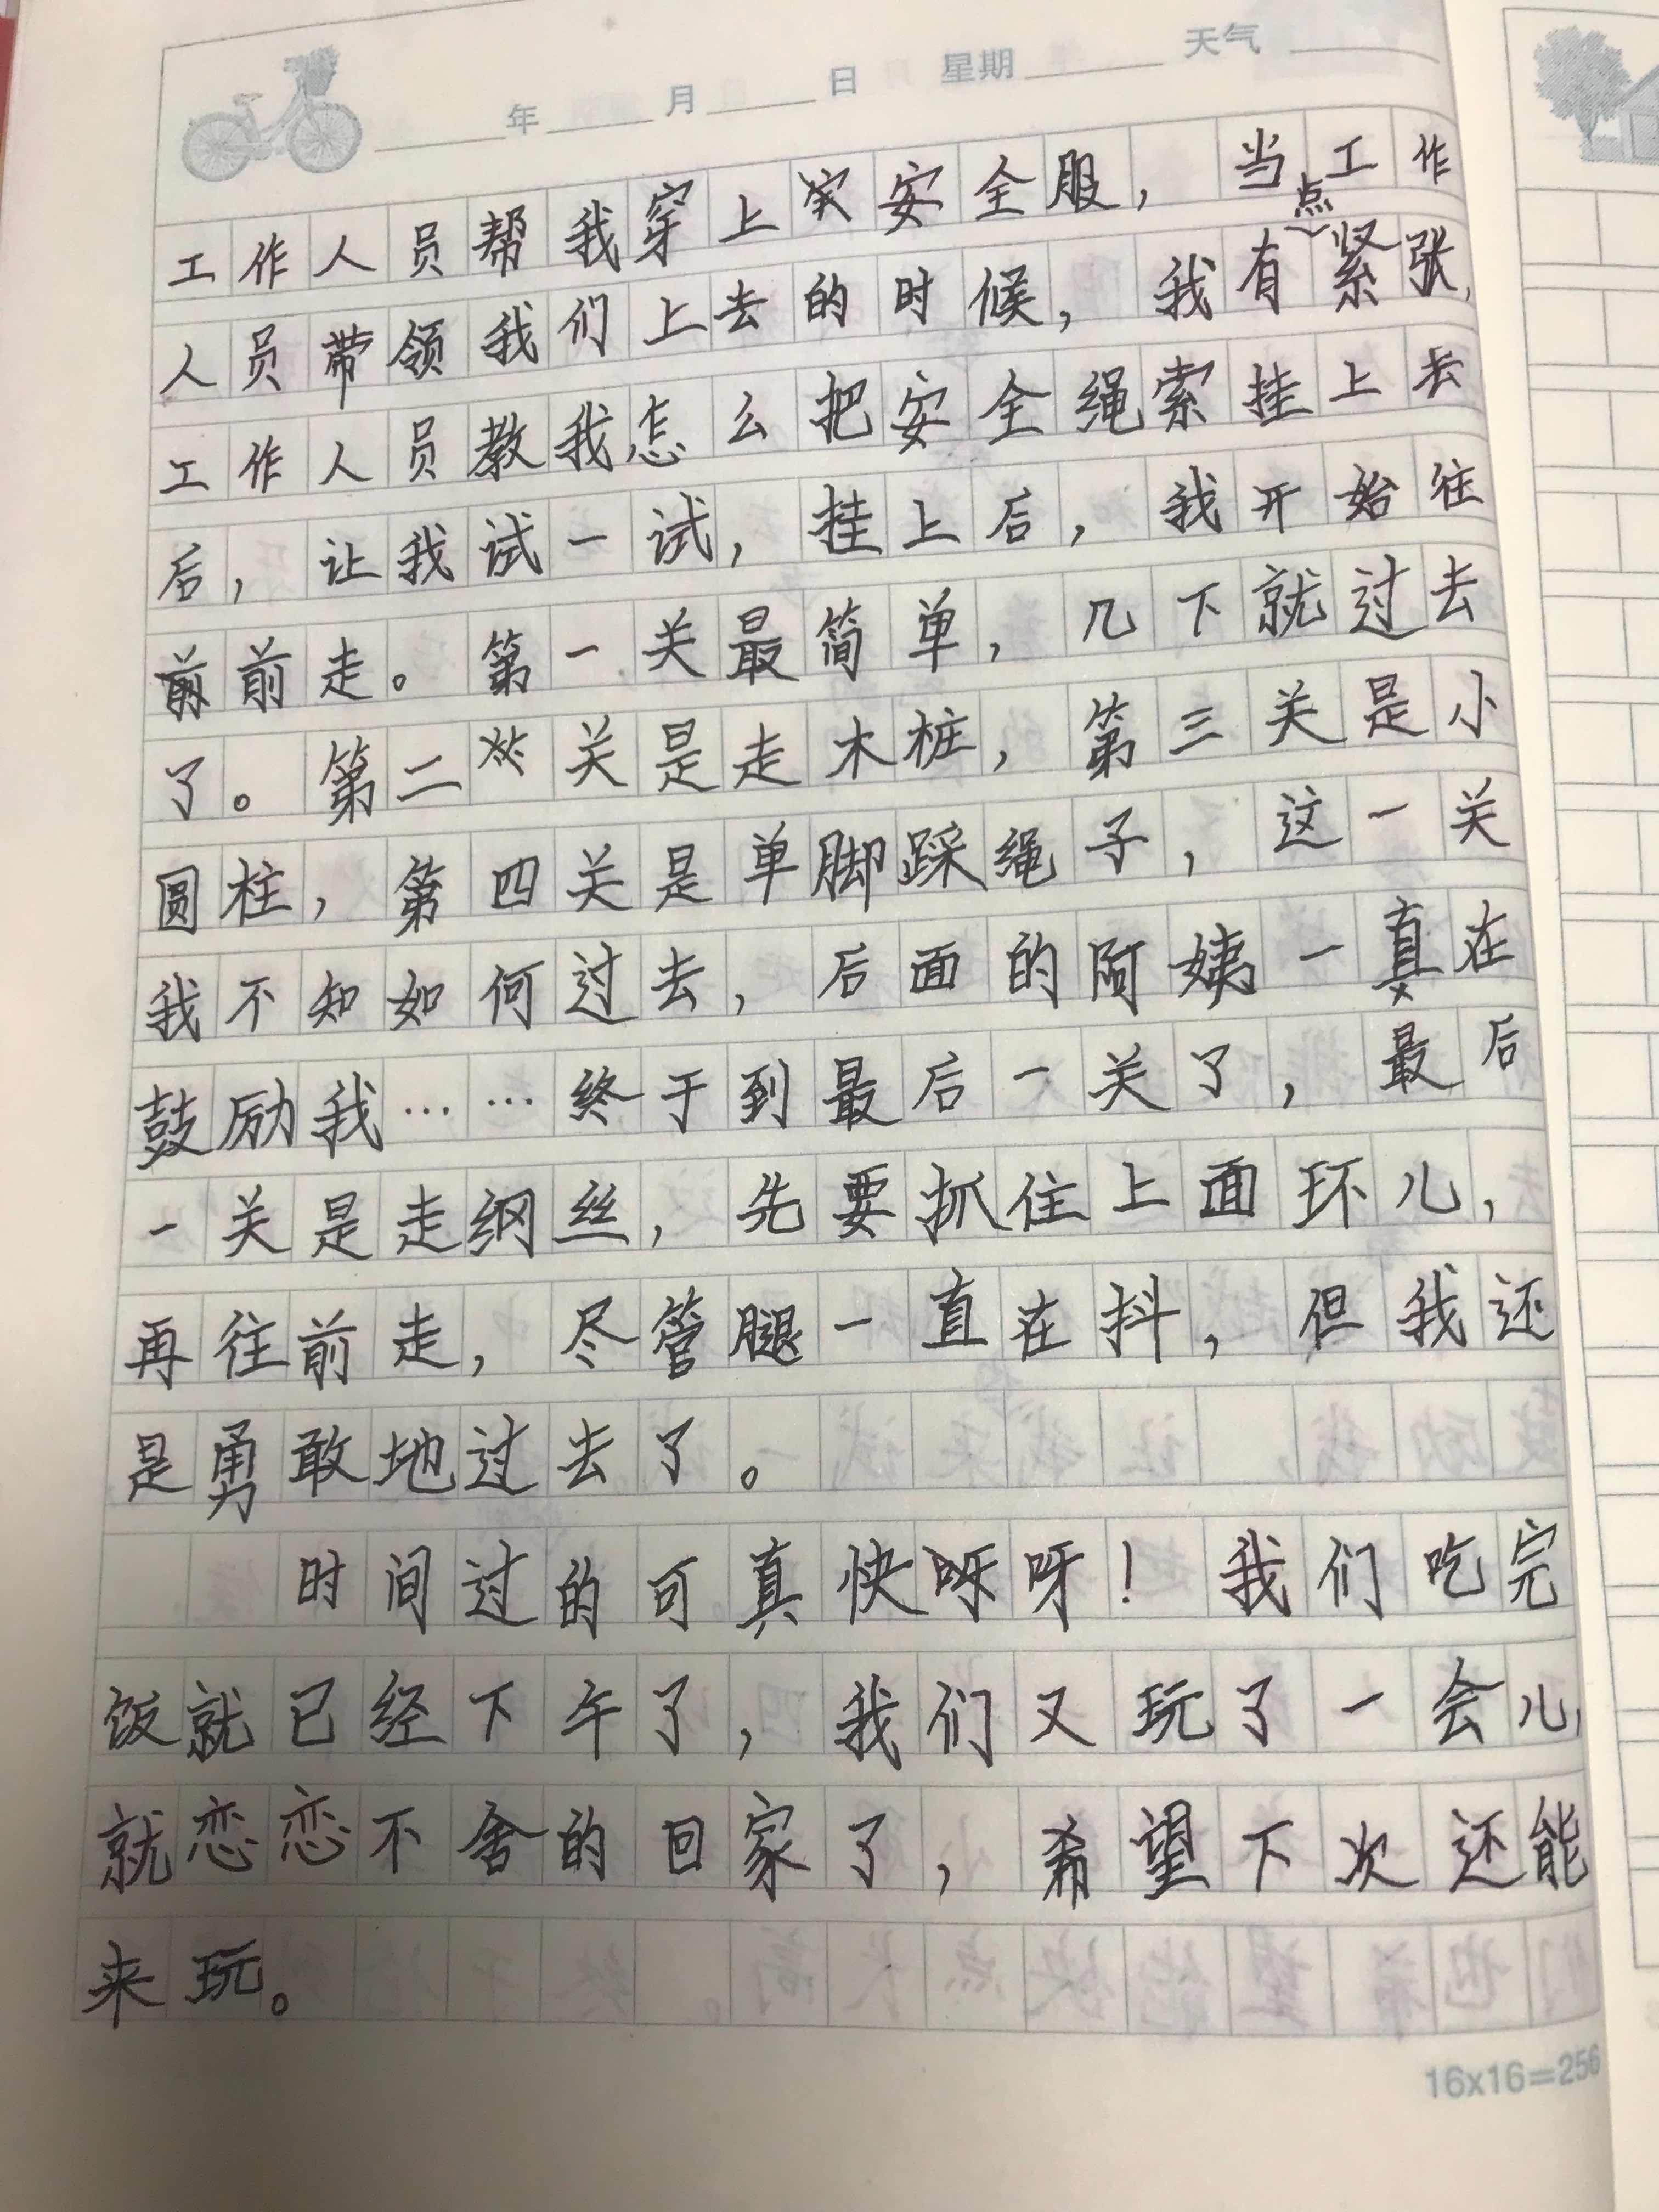 年 月 日 星期 天气
工作人员帮我穿上安全服，当工作
人员带领我们上去的时候，我有点紧张，
工作人员教我怎么把安全绳索挂上去
后，让我试一试，挂上后，我开始往
前走。第一关最简单，几下就过去
了。第二关是走木桩，第三关是小
圆柱，第四关是单脚踩绳子，这一关
我不知如何过去，后面的阿姨一真在
鼓励我……终于到最后一关了，最后
一关是走纲丝，先要抓住上面环儿，
再往前走，尽管腿一直在抖，但我还
是勇敢地过去了。
时间过的可真快呀呀！我们吃完
饭就已经下午了，我们又玩了一会儿，
就恋恋不舍的回家了，希望下次还能
来玩。
16x16=256